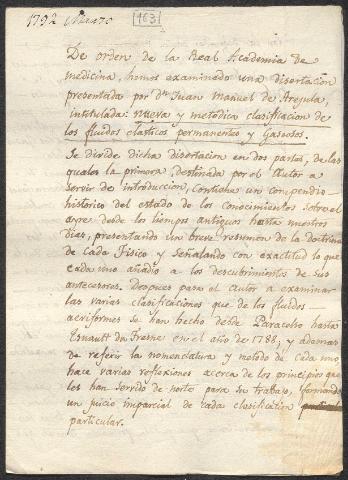 1792 Marzo
163
De orden de la Real Academia de
medicina, hemos examinado una disertacion
presentada por dn Juan manuel de Arejula,
intitulada: nueva y metodica clasificacion de
los fluidos elasticos permanentes y Gaseosos.
Se divide dicha disertacion en dos partes, de las
quales la primera, destinada por el Autor a
servir de introduccion, contiene un compendio
historico del estado de los conocimientos sobre el
ayre desde los tiempos antiguos hasta nuestros
dias, presentando un breve resumen de la doctrina
de cada Fisico y señalando con exactitud lo que
cada uno añadio a los descubrimientos de sus
antecesores. Despues pasa el Autor a examinar
las varias clasificaciones que de los fluidos
aeriformes se han hecho desde Paracelso hasta
Ernault du Fresne en el año de 1788; y ademas
de referir la nomenclatura y metodo de cada uno
hace varias reflexiones acerca de los principios que
les han servido de norte para su trabajo, formando
un juicio imparcial de cada clasificacion
particular.